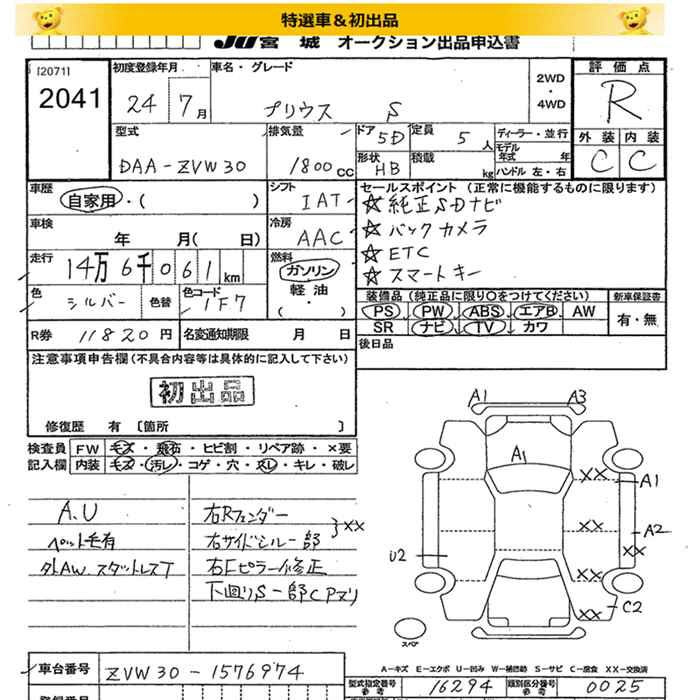 特選車＆初出品
JU宮城 オークション出品申込書
[2071]
2041
初度登録年月 24 7月
車名・グレード プリウス S
2WD・4WD
評価点 R
型式 DAA-ZVW30
排気量 1800cc
ドア 5D 定員 5人
形状 HB 積載 kg
ディーラー・並行
モデル年式 年
ハンドル 左・右
外装 内装
C C
車歴 自家用・( )
シフト IAT
セールスポイント (正常に機能するものに限ります)
☆純正SDナビ
☆バックカメラ
☆ETC
☆スマートキー
車検 年 月( 日)
冷房 AAC
走行 14万6千061km
燃料 ガソリン・軽油・( )
色 シルバー 色替 色コード 1F7
装備品 (純正品に限り○をつけてください) 新車保証書
PS PW ABS エアB AW 有・無
SR ナビ TV カワ
R券 11820円 名変通知期限 月 日
後日品
注意事項申告欄 (不具合内容等は具体的に記入して下さい)
初出品
修復歴 有 [箇所 ]
検査員記入欄
FW キズ・飛石・ヒビ割・リペア跡・×要
内装 キズ・汚レ・コゲ・穴・スレ・キレ・破レ
A.U
ペット毛有
外AW.スタットレスT
右Rフェンダー
右サイドシル一部 }××
右Fピラー修正
下回りS一部CPアリ
A1 A3
A1
××
A1
××
A2
××
U2
××
××
C2
スペア
A－キズ E－エクボ U－凹み W－補修跡 S－サビ C－腐食 ××－交換済
車台番号 ZVW30-1576974
型式指定番号 参考 16294
類別区分番号 参考 0025